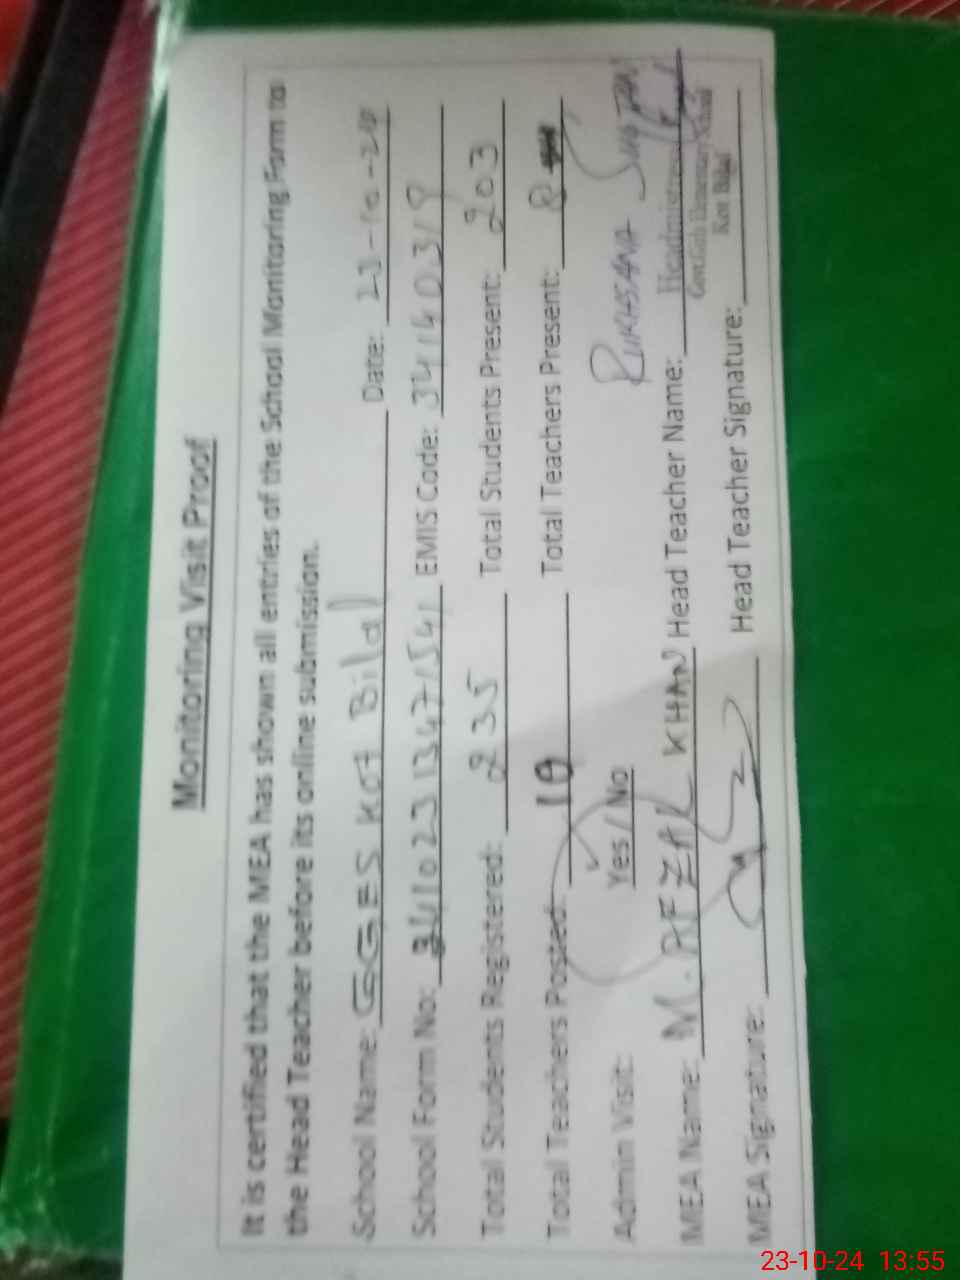 Monitoring Visit Proof
It is certified that the MEA has shown all entries of the School Monitoring Form to
the Head Teacher before its online submission.
School Name: GGES Kot Bilal Date: 23-10-24
School Form No: EMIS Code: 34140319
Total Students Registered: 235 Total Students Present: 203
Total Teachers Posted: Total Teachers Present:
Admin Visit: Yes / No
MEA Name: M. AFZAL KHAN Head Teacher Name: RUKHSANA
Headmistress
Govt. Girls Elementary School
Kot Bilal
MEA Signature: Head Teacher Signature:
23-10-24 13:55